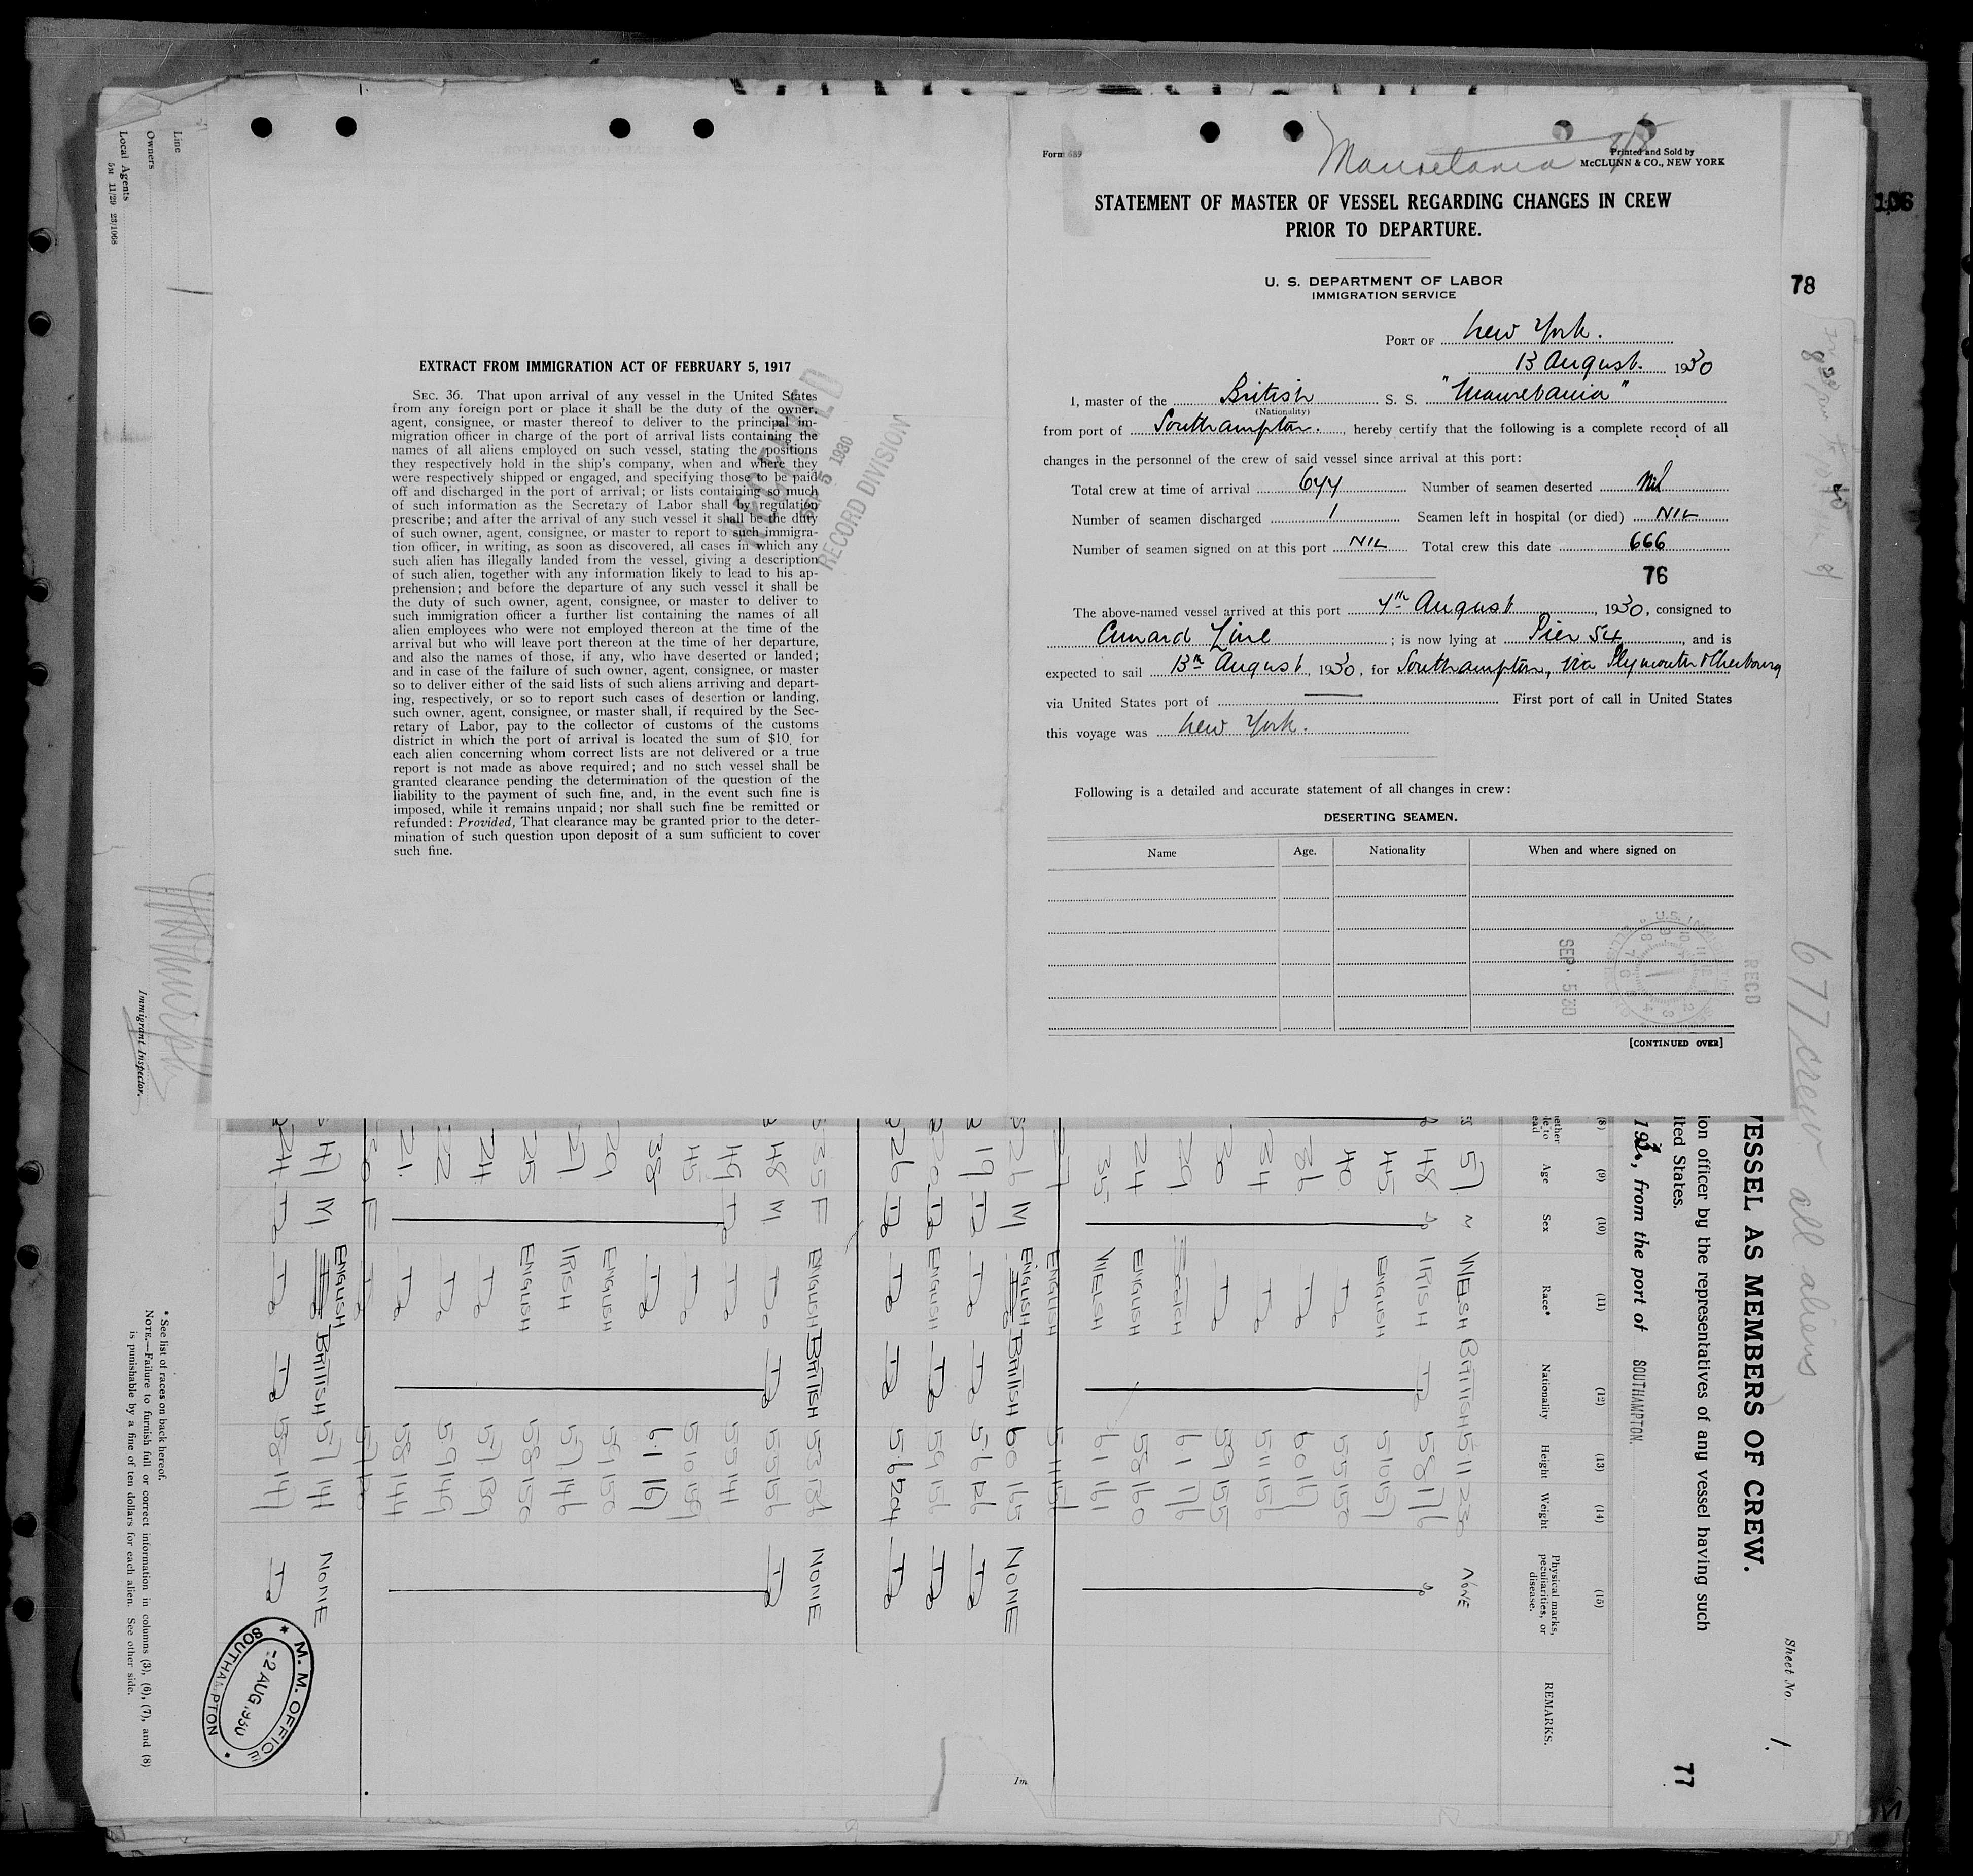 Line
Owners
Local Agents
5M 11/29 23/1068
Immigrant Inspector.
* See list of races on back hereof.
NOTE.—Failure to furnish full or correct information in columns (3), (6), (7), and (8)
is punishable by a fine of ten dollars for each alien. See other side.
EXTRACT FROM IMMIGRATION ACT OF FEBRUARY 5, 1917
SEC. 36. That upon arrival of any vessel in the United States
from any foreign port or place it shall be the duty of the owner,
agent, consignee, or master thereof to deliver to the principal im-
migration officer in charge of the port of arrival lists containing the
names of all aliens employed on such vessel, stating the positions
they respectively hold in the ship's company, when and where they
were respectively shipped or engaged, and specifying those to be paid
off and discharged in the port of arrival; or lists containing so much
of such information as the Secretary of Labor shall by regulation
prescribe; and after the arrival of any such vessel it shall be the duty
of such owner, agent, consignee, or master to report to such immigra-
tion officer, in writing, as soon as discovered, all cases in which any
such alien has illegally landed from the vessel, giving a description
of such alien, together with any information likely to lead to his ap-
prehension; and before the departure of any such vessel it shall be
the duty of such owner, agent, consignee, or master to deliver to
such immigration officer a further list containing the names of all
alien employees who were not employed thereon at the time of the
arrival but who will leave port thereon at the time of her departure,
and also the names of those, if any, who have deserted or landed;
and in case of the failure of such owner, agent, consignee, or master
so to deliver either of the said lists of such aliens arriving and depart-
ing, respectively, or so to report such cases of desertion or landing,
such owner, agent, consignee, or master shall, if required by the Sec-
retary of Labor, pay to the collector of customs of the customs
district in which the port of arrival is located the sum of $10 for
each alien concerning whom correct lists are not delivered or a true
report is not made as above required; and no such vessel shall be
granted clearance pending the determination of the question of the
liability to the payment of such fine, and, in the event such fine is
imposed, while it remains unpaid; nor shall such fine be remitted or
refunded: Provided, That clearance may be granted prior to the deter-
mination of such question upon deposit of a sum sufficient to cover
such fine.
RECEIVED
SEP 5 1930
RECORD DIVISION
Form 689
Mauretania 8/8
Printed and Sold by
McCLUNN & CO., NEW YORK
STATEMENT OF MASTER OF VESSEL REGARDING CHANGES IN CREW
PRIOR TO DEPARTURE.
U. S. DEPARTMENT OF LABOR
IMMIGRATION SERVICE
PORT OF New York.
13 August. 1930
I, master of the British S. S. "Mauretania"
(Nationality)
from port of Southampton., hereby certify that the following is a complete record of all
changes in the personnel of the crew of said vessel since arrival at this port:
Total crew at time of arrival 677 Number of seamen deserted Nil
Number of seamen discharged 1 Seamen left in hospital (or died) NIL
Number of seamen signed on at this port NIL Total crew this date 666
76
The above-named vessel arrived at this port 7th August, 1930, consigned to
Cunard Line; is now lying at Pier 54, and is
expected to sail 13th August, 1930, for Southampton, via Plymouth & Cherbourg
via United States port of First port of call in United States
this voyage was New York.
Following is a detailed and accurate statement of all changes in crew:
DESERTING SEAMEN.
Name Age. Nationality When and where signed on
SEP. 5 30
RECD
[CONTINUED OVER]
106
78
677 crew all aliens
Sheet No. 1.
77
VESSEL AS MEMBERS OF CREW.
ion officer by the representatives of any vessel having such
ted States.
, from the port of SOUTHAMPTON.
(8) (9) (10) (11) (12) (13) (14) (15)
Age Sex Race* Nationality Height Weight Physical marks, peculiarities, or disease. REMARKS.
57 M WELSH BRITISH 5 11 230 NONE
48 Do IRISH Do 5 8 176 Do
45 ENGLISH 5 10 157
40 Do 5 5 150
36 Do 6 0 167
34 Do 5 11 156
30 Do 5 9 155
29 SCOTCH 6 1 176
24 ENGLISH 5 8 160
35 WELSH 6 1 161
27 ENGLISH
26 M ENGLISH BRITISH 6 0 165 NONE
19 Do Do Do 5 6 126 Do
20 Do ENGLISH Do 5 9 156 Do
26 Do Do Do 5 6 204 Do
35 F ENGLISH BRITISH 5 3 136 NONE
48 M Do Do 5 5 156 Do
49 Do Do 5 5 141
45 Do 5 10 159
38 Do 6 1 167
29 ENGLISH 5 9 150
27 IRISH 5 7 146
25 ENGLISH 5 8 150
24 Do 5 7 139
22 Do 5 9 149
21 Do 5 8 144
30 F Do
47 M ENGLISH BRITISH 5 7 141 NONE
24 Do Do Do 5 8 147 Do
M. M. OFFICE
-2 AUG.1930
SOUTHAMPTON